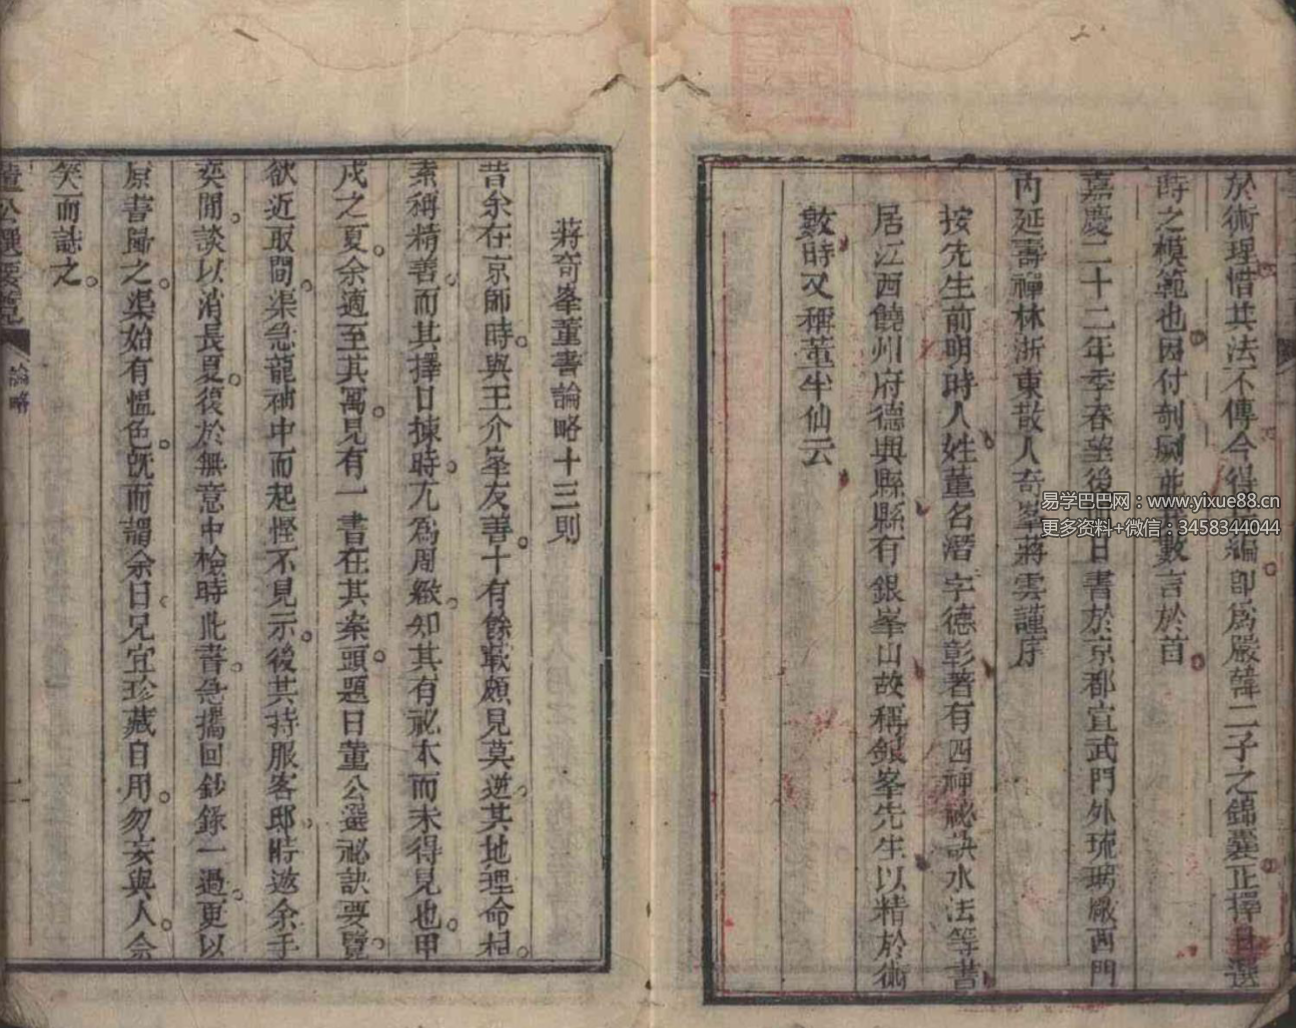 於術理惜其法不傳今得是編即爲嚴韓二子之錦囊正擇日選
時之模範也因付剞劂並數言於首
嘉慶二十二年季春望後四日書於京都宣武門外琉璃廠西門
內延壽禪林浙東散人奇峯蔣雲謹序
按先生前明時人姓董名潛字德彰著有四神祕訣水法等書
居江西饒州府德興縣縣有銀峯山故稱銀峯先生以精於術
數時又稱董半仙云
蔣奇峯董書論略十三則
昔余在京師時與王介峯友善十有餘載頗見莫逆其地理命相
素稱精善而其擇日揀時尤爲周緻知其有祕本而未得見也甲
戌之夏余適至其寓見有一書在其案頭題曰董公選祕訣要覽
欲近取閱渠急龍袖中而起慳不見示後其持服客邸時邀余手
奕閒談以消長夏復於無意中檢時此書急攜回鈔錄一過更以
原書歸之渠始有慍色旣而謂余曰兄宜珍藏自用勿妄與人余
笑而誌之
董公選要覽
論略
一
易学巴巴网：www.yixue88.cn
更多资料+微信：3458344044